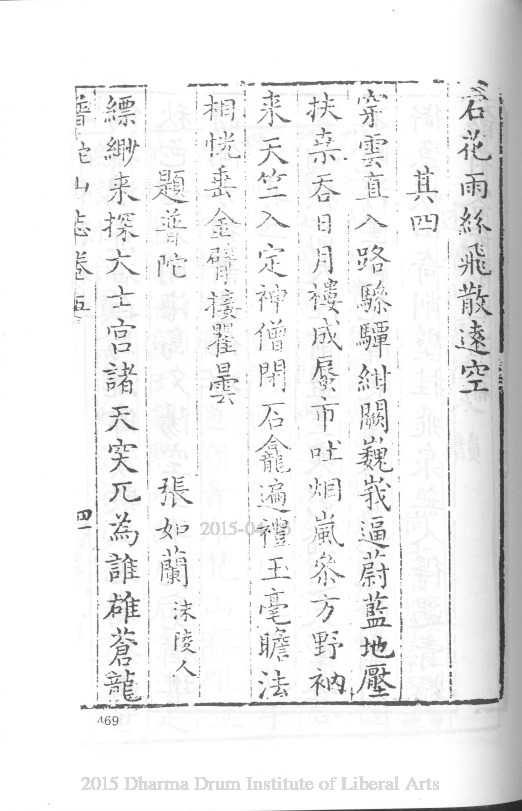 岩花雨絲飛散遠空
其四
穿雲直入路驂驔紺闕巍峩逼蔚藍地壓
扶桒吞日月樓成蜃市吐烟嵐叅方野衲
来天竺入定神僧閉石龕遍禮玉毫瞻法
相恍垂金臂接瞿曇
題普陀 張如蘭 沫陵人
縹緲来探大士宫諸天突兀為誰雄蒼龍
普陀山志卷五 四一
469
2015-04-16
2015 Dharma Drum Institute of Liberal Arts